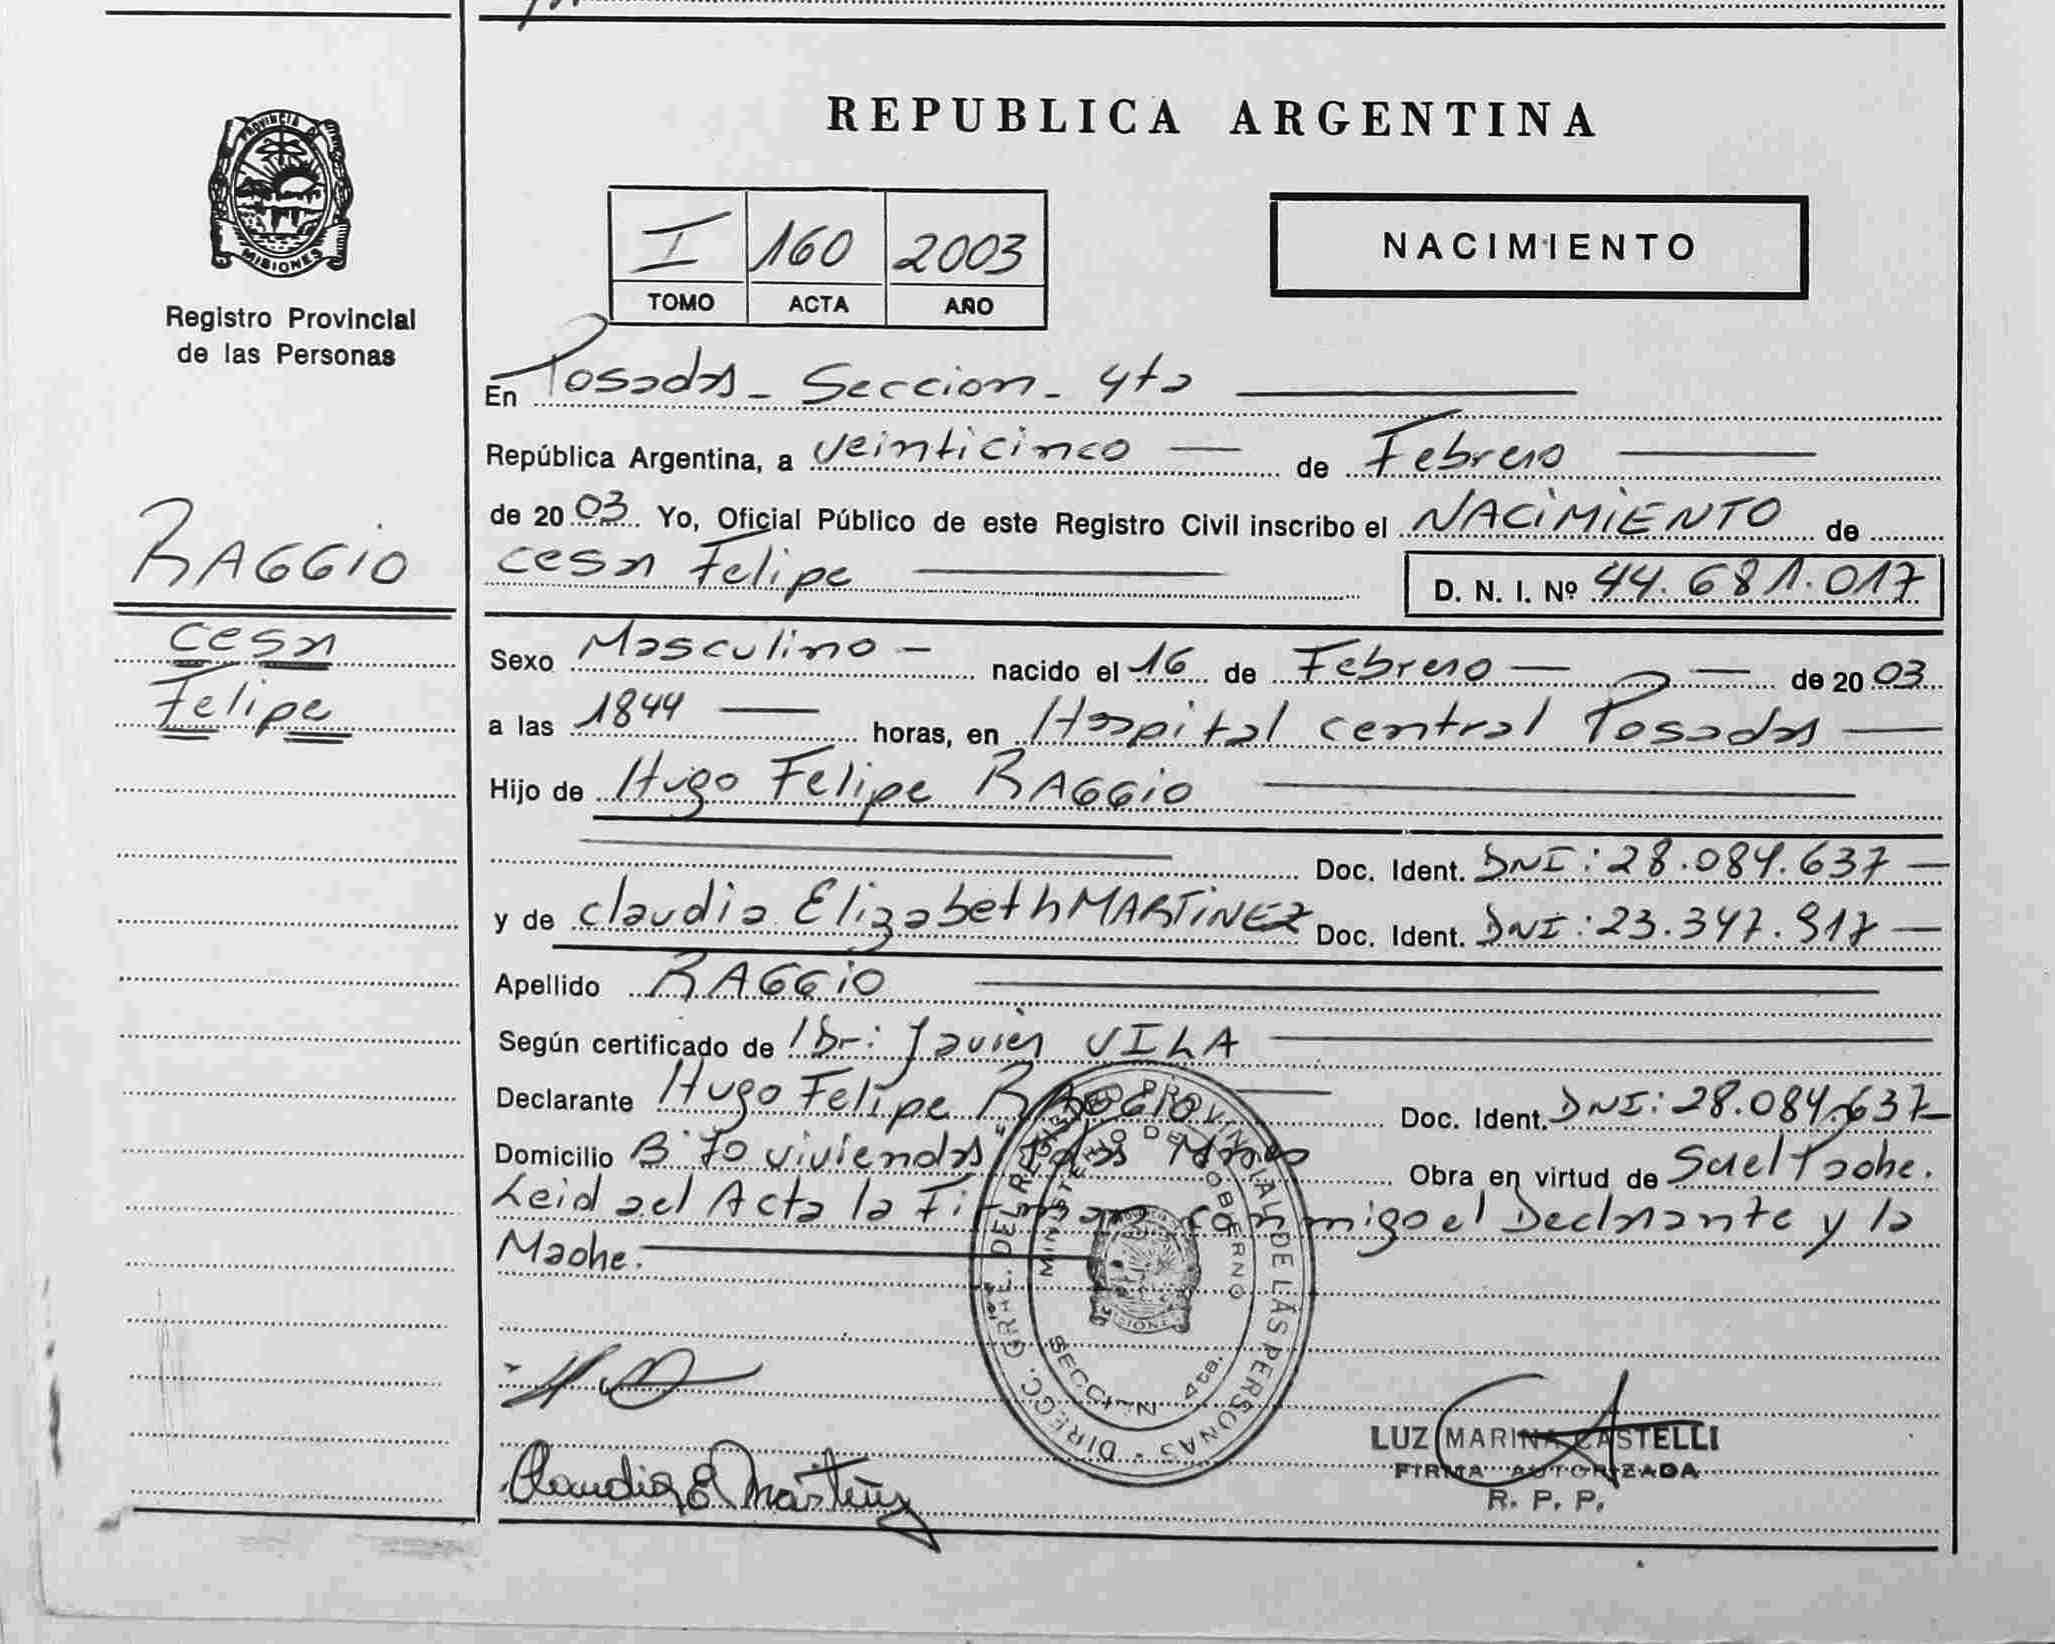 PROVINCIA DE
MISIONES
Registro Provincial
de las Personas
RAGGIO
Cesar
Felipe
REPUBLICA ARGENTINA
I 160 2003
TOMO ACTA AÑO
NACIMIENTO
En Posadas - Seccion - 4ta
República Argentina, a veinticinco de Febrero
de 2003 Yo, Oficial Público de este Registro Civil inscribo el NACIMIENTO de
Cesar Felipe D. N. I. Nº 44.681.017
Sexo Masculino - nacido el 16 de Febrero de 2003
a las 1844 horas, en Hospital central Posadas
Hijo de Hugo Felipe RAGGIO
Doc. Ident. DNI: 28.084.637
y de Claudia Elizabeth MARTINEZ Doc. Ident. DNI: 23.347.917
Apellido RAGGIO
Según certificado de Dr: Javier VILA
Declarante Hugo Felipe RAGGIO Doc. Ident. DNI: 28.084.637
Domicilio Bº 70 viviendas Obra en virtud de Ser el Padre.
Leida el Acta la Firman conmigo el Declarante y la
Madre.
DIRECC. GRAL. DEL REGISTRO PROVINCIAL DE LAS PERSONAS
MINISTERIO DE GOBIERNO
SECCION 4ta.
Claudia E Martinez
LUZ MARINA CASTELLI
FIRMA AUTORIZADA
R. P. P.